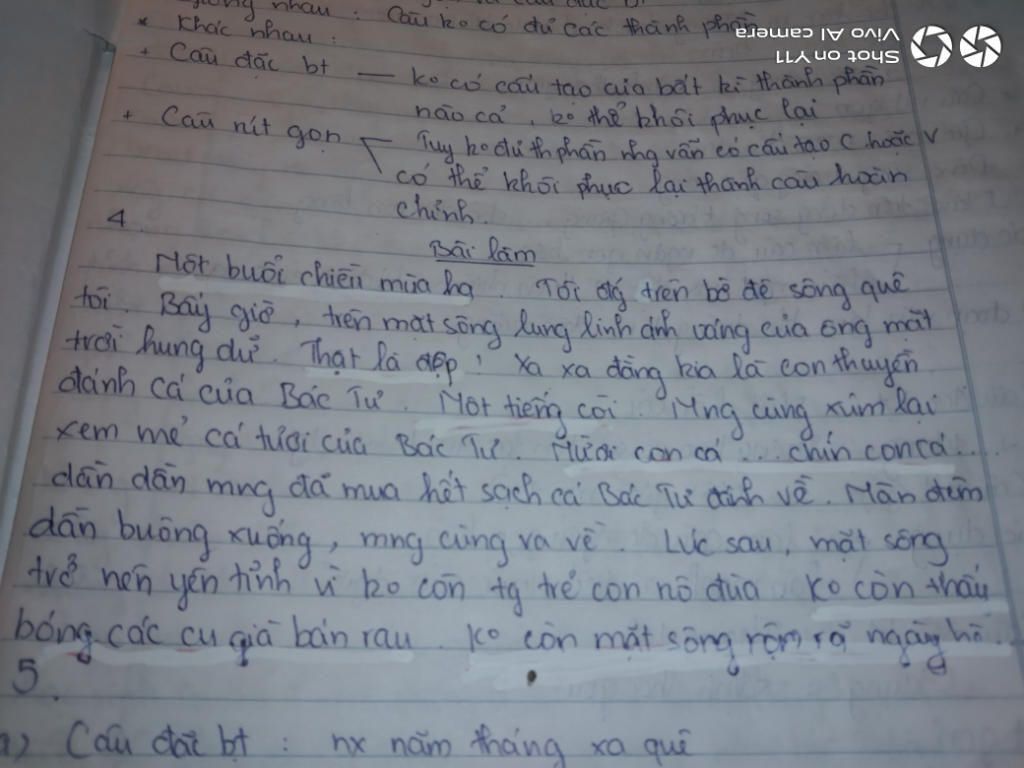 giống nhau : Câu ko có đủ các thành phần
* Khác nhau :
+ Câu đặc bt — ko có cấu tạo của bất kì thành phần
nào cả, ko thể khôi phục lại
+ Câu rút gọn < Tuy ko đủ th phần nhg vẫn có cấu tạo C hoặc V
có thể khôi phục lại thành câu hoàn
chỉnh.
4.
Bài làm
Một buổi chiều mùa hạ. Tôi đg trên bờ đê sông quê
tôi. Bây giờ, trên mặt sông lung linh ánh vàng của ong mặt
trời hung dữ. Thật là đẹp! Xa xa đằng kia là con thuyền
đánh cá của Bác Tư. Một tiếng còi. Mng cùng xúm lại
xem mẻ cá tươi của Bác Tư. Mười con cá... chín con cá....
dần dần mng đã mua hết sạch cá Bác Tư đánh về. Màn đêm
dần buông xuống, mng cùng ra về. Lúc sau, mặt sông
trở nên yên tĩnh vì ko còn tg trẻ con nô đùa. Ko còn thấy
bóng các cụ già bán rau. Ko còn mặt sông rộm rã ngày hè.
5.
a) Câu đặc bt : nx năm tháng xa quê
Shot on Y11
Vivo AI camera